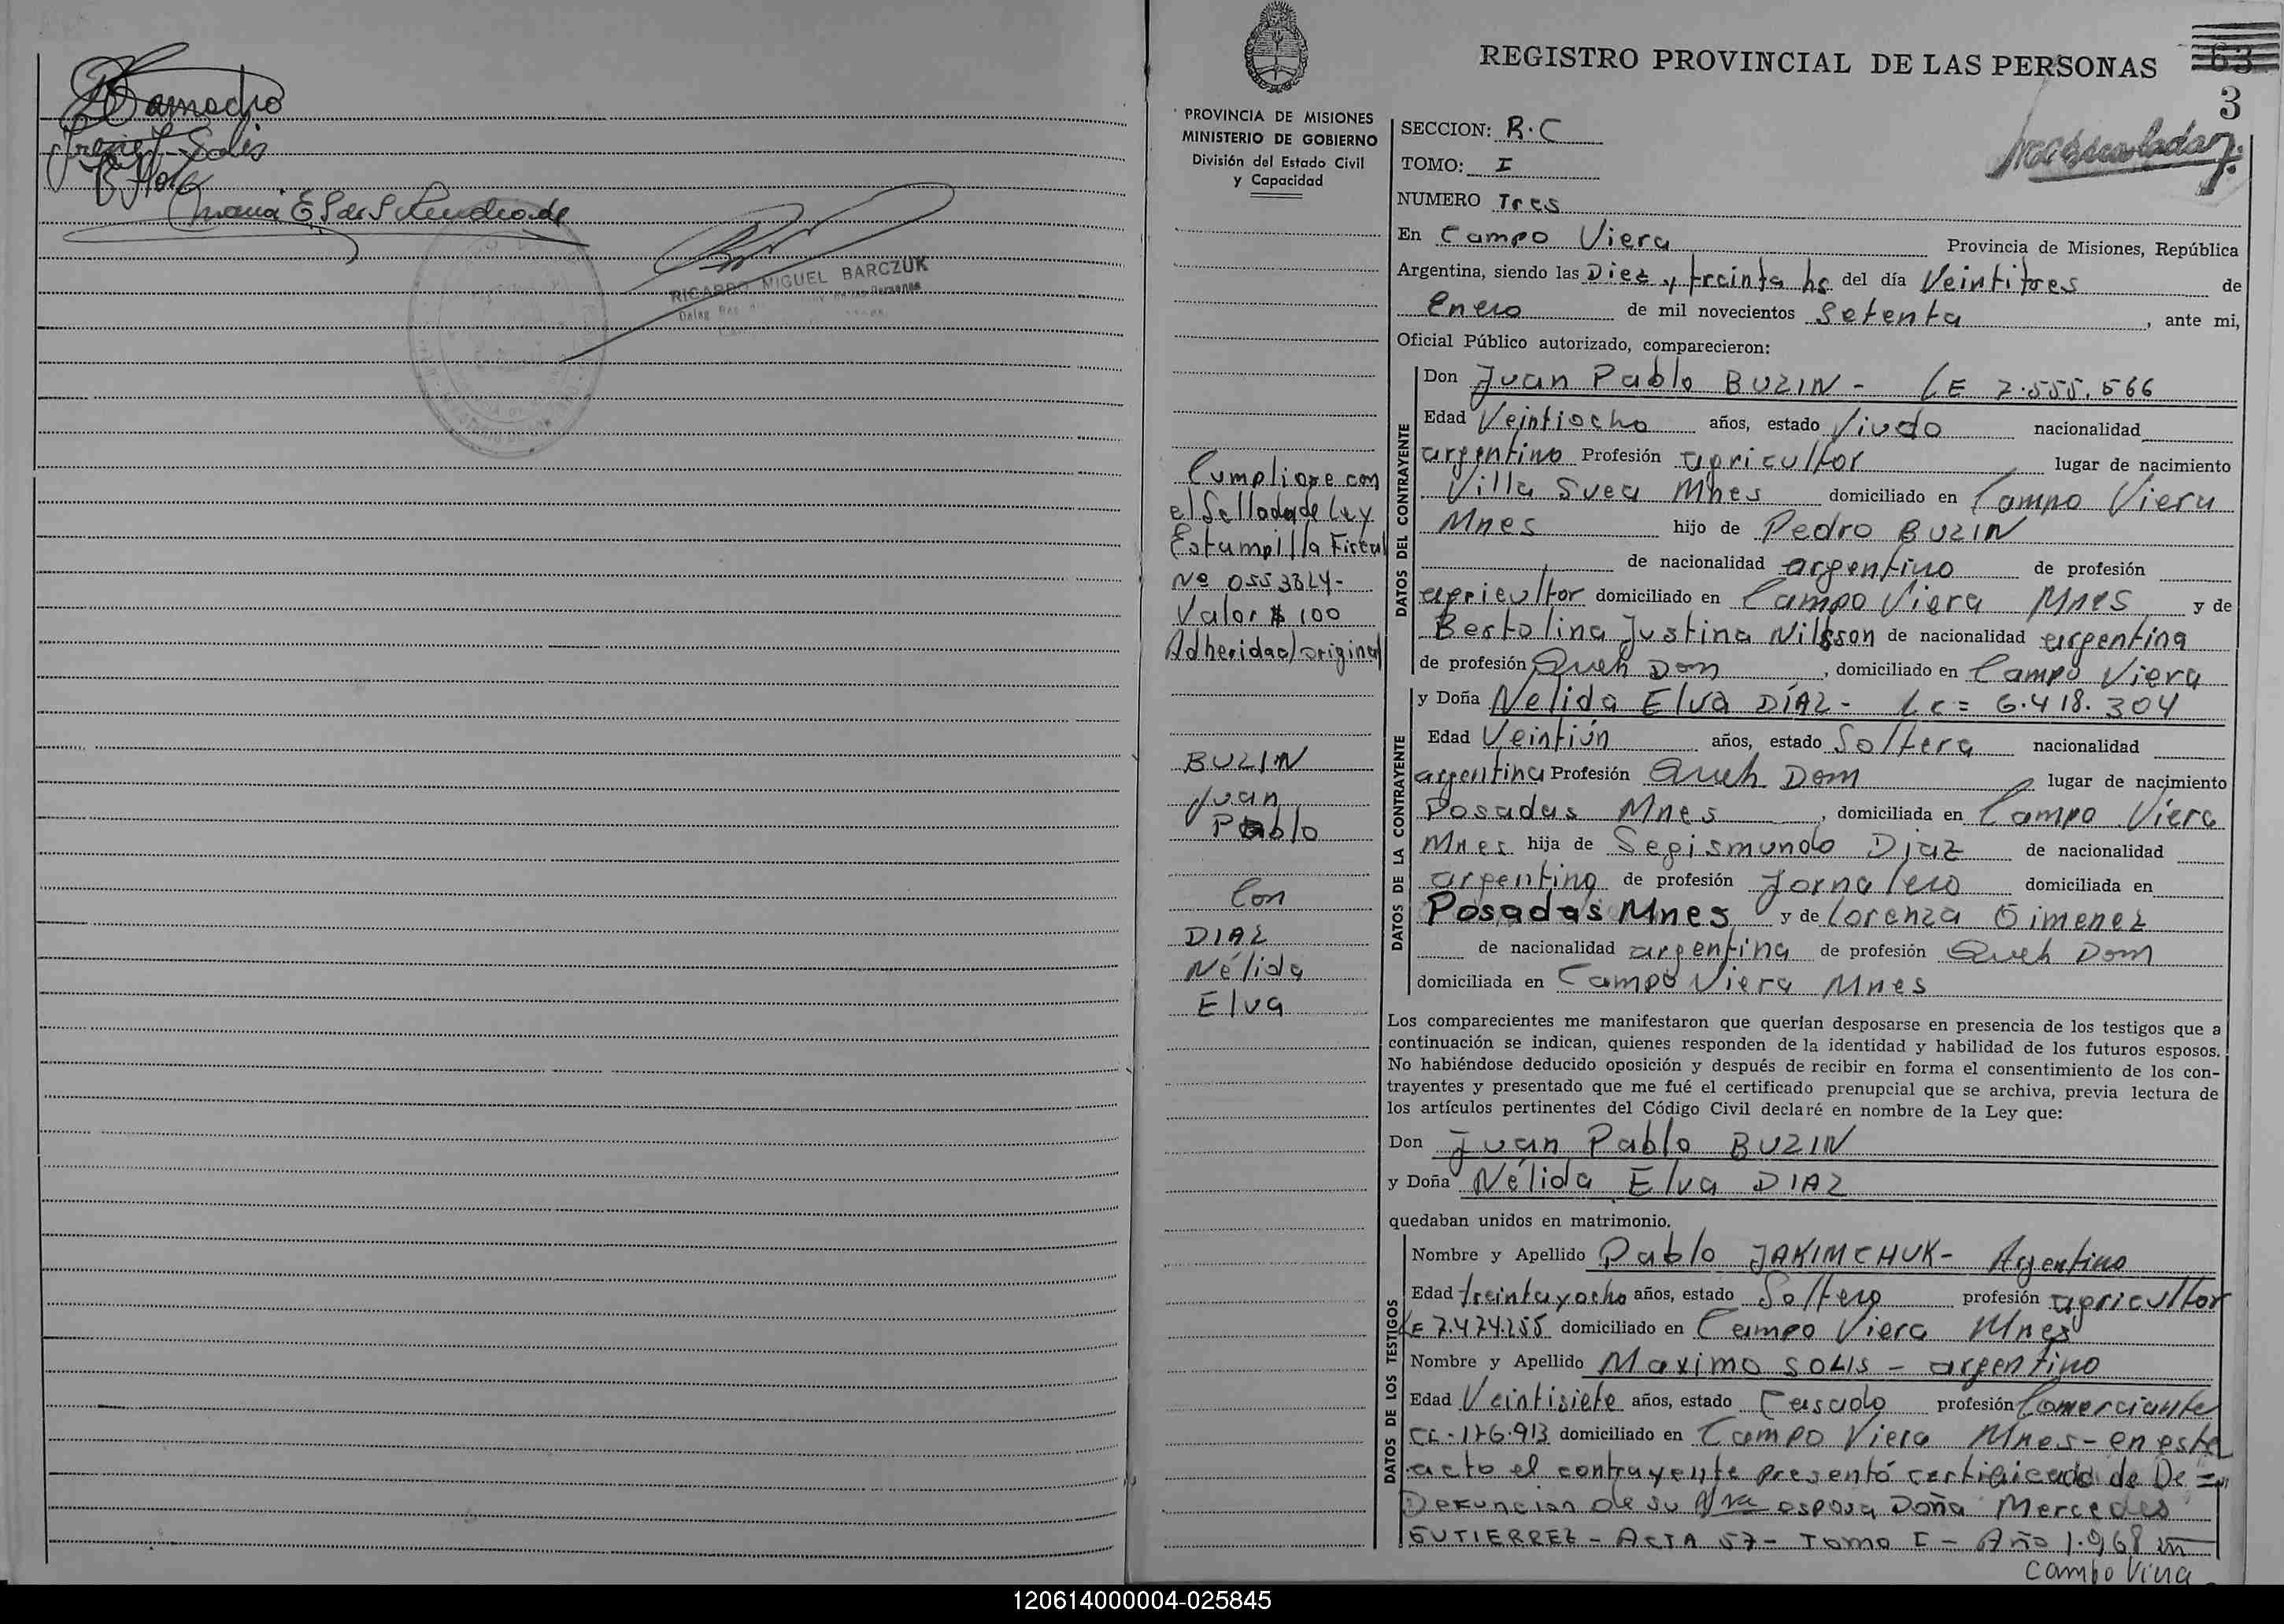 Camacho
Irene J. Solis
RICARDO MIGUEL BARCZUK
REGISTRO PROVINCIAL DE LAS PERSONAS
63
3
PROVINCIA DE MISIONES
MINISTERIO DE GOBIERNO
División del Estado Civil
y Capacidad
SECCION: R.C
TOMO: I
NUMERO Tres
En Campo Viera Provincia de Misiones, República
Argentina, siendo las Diez y treinta hs del día Veintitres de
Enero de mil novecientos Setenta, ante mi,
Oficial Público autorizado, comparecieron:
DATOS DEL CONTRAYENTE
Don Juan Pablo BUZIN - LE 7.555.566
Edad Veintiocho años, estado Viudo nacionalidad
argentino Profesión agricultor, lugar de nacimiento
Villa Svea Mnes domiciliado en Campo Viera
Mnes hijo de Pedro BUZIN
de nacionalidad argentino de profesión
agricultor domiciliado en Campo Viera Mnes y de
Bertolina Justina Nilsson de nacionalidad argentina
de profesión Queh Dom, domiciliado en Campo Viera
DATOS DE LA CONTRAYENTE
y Doña Nelida Elva DÍAZ - LC = 6.418.304
Edad Veintiún años, estado Soltera nacionalidad
argentina Profesión Queh Dom, lugar de nacimiento
Posadas Mnes, domiciliada en Campo Viera
Mnes hija de Segismundo Diaz de nacionalidad
argentino de profesión Jornalero domiciliada en
Posadas Mnes y de Lorenza Gimenez
de nacionalidad argentina de profesión Queh Dom
domiciliada en Campo Viera Mnes
Los comparecientes me manifestaron que querían desposarse en presencia de los testigos que a
continuación se indican, quienes responden de la identidad y habilidad de los futuros esposos.
No habiéndose deducido oposición y después de recibir en forma el consentimiento de los con-
trayentes y presentado que me fué el certificado prenupcial que se archiva, previa lectura de
los artículos pertinentes del Código Civil declaré en nombre de la Ley que:
Don Juan Pablo BUZIN
y Doña Nélida Elva DIAZ
quedaban unidos en matrimonio.
DATOS DE LOS TESTIGOS
Nombre y Apellido Pablo JAKIMCHUK - Argentino
Edad treinta y ocho años, estado Soltero profesión agricultor
LE 7.474.255 domiciliado en Campo Viera Mnes
Nombre y Apellido Maximo SOLIS - argentino
Edad Veintisiete años, estado Casado profesión Comerciante
CI - 176.913 domiciliado en Campo Viera Mnes - en este
acto el contrayente presentó certificado de De =
Defuncion de su 1ra esposa Doña Mercedes
GUTIERREZ - ACTA 57 - Tomo I - Año 1.968 en
Campo Viera
Cumpliose con
el Sellado de Ley
Estampilla Fiscal
Nº 0553824-
Valor $ 100
Adherida c/original
BUZIN
Juan
Pablo
Con
DIAZ
Nélida
Elva
120614000004-025845